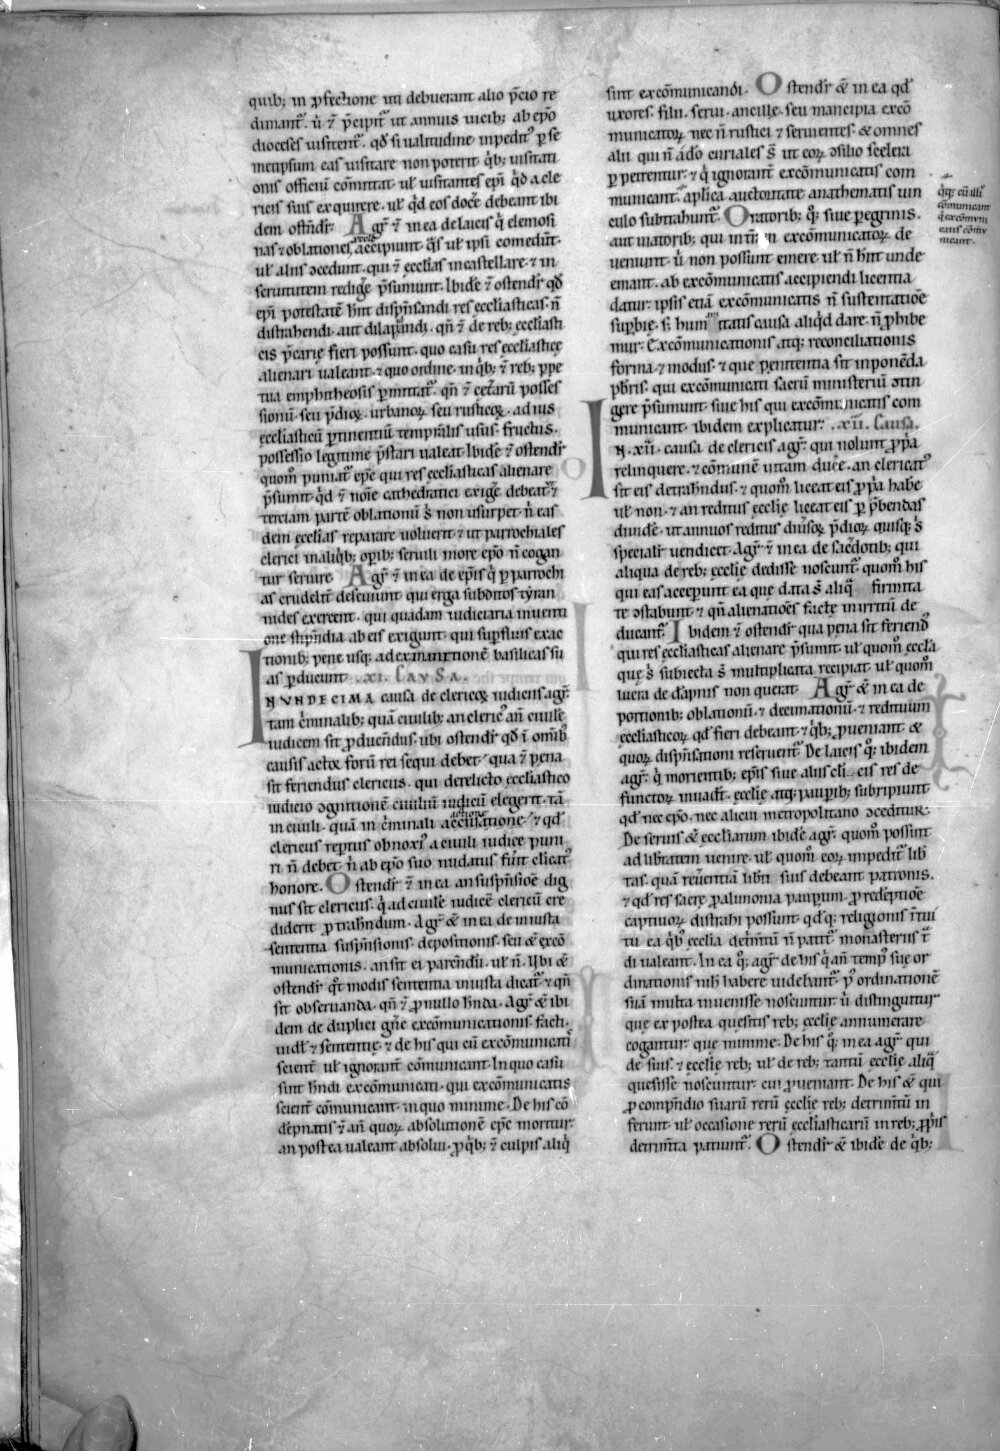 quib; in ꝓfectione uti debuerant alio p̄cio re
dimant᷑. ū ⁊ p̄cipit᷑ ut annuis uicib; ab ep̄o
dioceses uisitent᷑. qđ si ualitudine inpedit᷑ ꝑ se
metipsum eas uisitare non poterit. q̇b; uisitati
onis officiū cōmittat. uł uisitantes ep̄i qͥd a cle
ricis suis exquirere. uł qͥd eos docē debeant ibi
dem ostn̄dit᷑. Agit᷑ ⁊ in ea de laicis qͥ elemosi
nas ⁊ oblationes accipiunt. qͣs uł ipsi comedūt.
uł aliis ↄcedunt. qui ⁊ ęcclias incastellare. ⁊ in
seruitutem redigē p̄sumunt. Ibidē ⁊ ostendit᷑ qđ
ep̄i potestatē hn̄t dispn̄sandi res ęcclesiasticas. n̄
distrahendi. aut dilapidandi. qn̄ ⁊ de reb; ęcclesiasti
cis p̄carię fieri possunt. quo casu res ęcclesiasticę
alienari ualeant. ⁊ quo ordine. in q̇b; ⁊ reb; ꝑpe
tua emphitheosis ꝑmittat᷑. qn̄ ⁊ cet̄arū posses
sionū. seu p̄dioꝝ. urbanoꝝ. seu rusticoꝝ. ad ius
ęcclesiasticū ꝑtinentiū temporalis usus. fructus.
possessio legitime p̄stari ualeat. Ibidē ⁊ ostendit᷑
quom̊ puniat᷑ ep̄c qui res ęcclesiasticas alienare
p̄sumit. qͥd ⁊ nōie cathedratici exigē debeat. ⁊
terciam partē oblationū s; non usurpet. n̄ eas
dem ęcclias reparare uoluerit. ⁊ ut parrochiales
clerici in aliq̇b; opib; seruili more ep̄o n̄ cogan
tur seruire. Agit᷑ ⁊ in ea de ep̄is qͥ ꝑ parrochi
as crudelit᷑ deseuiunt. qui erga subditos tyran
nides exercent. qui quadam iudiciaria inuenti
one stipn̄dia ab eis exigunt. qui supfluis exac
tionib; pene usq; ad exinanitionē basilicas su
as ꝑducunt. .XI. CAUSA.
INUNDECIMA causa de clericoꝝ iudiciis agit᷑
tam cͥminalib; quā ciuilib; an cleric᷒ an̄ ciuilē
iudicem sit ꝓducendus. ubi ostendit᷑ qđ ī om̄ib;
causis actor forū rei sequi debet. qua ⁊ pena
sit feriendus clericus. qui derelicto ęcclesiastico
iudicio ↄgnitionē ciuiliū iudicū elegerit. tā
in ciuili. quā in cͥminali accusatione. ⁊ qđ
clericus reptus obnoxi᷒ a ciuili iudice puni
ri n̄ debet. n̄ ab ep̄o suo nudatus fūit clicat᷑
honore. Ostendit᷑ ⁊ in ea an suspn̄siōe dig
nus sit clericus. qͥ ad ciuilē iudicē clericū cre
diderit ꝓtrahn̄dum. Agit᷑ & in ea de iniusta
sententia suspn̄sionis. depositionis. seu & excō
municationis. an sit ei parendū. uł n̄. Ubi &
ostendit᷑ qͦt modis sententia iniusta dicat᷑. ⁊ qn̄
sit obseruanda. qn̄ ⁊ ꝓ nullo hn̄da. Agit᷑ & ibi
dem de duplici gn̄e excōmunicationis. facti.
uidł ⁊ sententię. ⁊ de his qui cū excōmunicati
scient᷑ uł ignorant᷑ cōmunicant. In quo casu
sint hn̄di excōmunicati. qui excōmunicatis
scient᷑ cōmunicant. in quo minime. De his cō
dēpnatis ⁊ an̄ quoꝝ absolutionē ep̄c moritur.
an postea ualeant absolui. ꝓ q̇b; ⁊ culpis aliqͥ
sint excōmunicandi. Ostendit᷑ & in ea qđ
uxores. filii. serui. ancille. seu mancipia excō
municatoꝝ nec n̄ rustici ⁊ seruientes. & omnes
alii qui n̄ adō curiales s̄ ut eoꝝ ↄsilio scelera
ꝑpetrentur. ⁊ qͥ ignorant᷑ excōmunicatis com
municant. aplica auctoritate anathematis uin
culo subtrahunt᷑. Oratorib; q; siue pegrinis.
aut uiatorib; qui in tr̄am excōmunicatoꝝ de
uenunt. ū non possunt emere. uł n̄ hn̄t unde
emant. ab excōmunicatis accipiendi licentia
datur. ipsis etiā excōmunicatis n̄ sustentatiōe
supbie. s; humanitatis causa aliqͥd dare. n̄ ꝓhibe
mur. Excōmunicationis atq; reconciliationis
forma. ⁊ modus. ⁊ que penitentia sit inponēda
pb̄ris. qui excōmunicati sacrū ministeriū ↄtin
gere p̄sumunt. siue his qui excōmunicatis com
municant. ibidem explicatur. .xii. Causa.
IN .xii. causa de clericis agit᷑. qui nolunt ꝓpͥa
relinquere. ⁊ cōmunē uitam ducē. an clericat᷒
sit eis detrahn̄dus. ⁊ quom̊ liceat eis ꝓpͥa habē
uł non. ⁊ an reditus ęcclię liceat eis ꝑ p̄bendas
diuidē. ut annuos reditus diūsoꝝ p̄dioꝝ quisq; s;
specialit᷑ uendicet. Agit᷑ ⁊ in ea de sacdotib; qui
aliqua de reb; ęcclię dedisse noscunt᷑. quom̊ his
qui eas accepunt ea que data s̄ aliqͣ firmita
te ↄstabunt. ⁊ qn̄ alienatiōes facte in irritū de
ducant᷑. Ibidem ⁊ ostendit᷑ qua pena sit feriend᷒
qui res ęcclesiasticas alienare p̄sumit. uł quom̊ ecclia
que s; subiecta s̄ multiplicata recipiat. uł quom̊
iuera de dāpnis non querat. Agit᷑ & in ea de
portionib; oblationū. ⁊ decimationū. ⁊ redituum
ęcclesiasticoꝝ. qđ fieri debeant. ⁊ q̇b; ꝓueniant. &
quoꝝ dispn̄sationi reseruent᷑. De laicis q; ibidem
agit᷑. qͥ morientib; ep̄is siue aliis clicis res de
functoꝝ inuadt̄. ęcclię atq; paupib; subripiunt.
qđ nec ep̄o. nec alicui metropolitano ↄceditur.
De seruis & ęccliarum ibidē agit᷑. quom̊ possint
ad libtatem uenire. uł quom̊ eoꝝ impedit᷑ lib
tas. quā reuentiā libti suis debeant patronis.
⁊ qđ res sacre ꝓ alimonia paupum. ꝓ redēptiōe
captiuoꝝ distrahi possunt. qđ q; religionis ītui
tu ea q̇b; ęcclia detn̄tū n̄ patit᷑. monasteriis t̄
di ualeant. In ea q; agit᷑ de his qͥ an̄ temp᷒ sue or
dinationis nihil habere uidebant᷑. p᷒ ordinationē
suā multa inuenisse noscuntur. ū distinguitur
que ex postea quesitis reb; ęcclię annumerare
cogantur. que minime. De his q; in ea agit᷑ qui
de suis. ⁊ ęcclię reb; uł de reb; tantū ęcclię aliqͣ
quesisse noscuntur. cui ꝓueniant. De his & qui
ꝓ compn̄dio suarū rerū ęcclię reb; detrimtū in
ferunt. uł occasione rerū ęcclesiasticarū in reb; ꝓpͥis
detrimta patiunt᷑. Ostendit᷑ & ibidē de q̇b;
qͥq; cū illis
cōmunicant
qͥ excōmuni
catis cōmu
nicant.